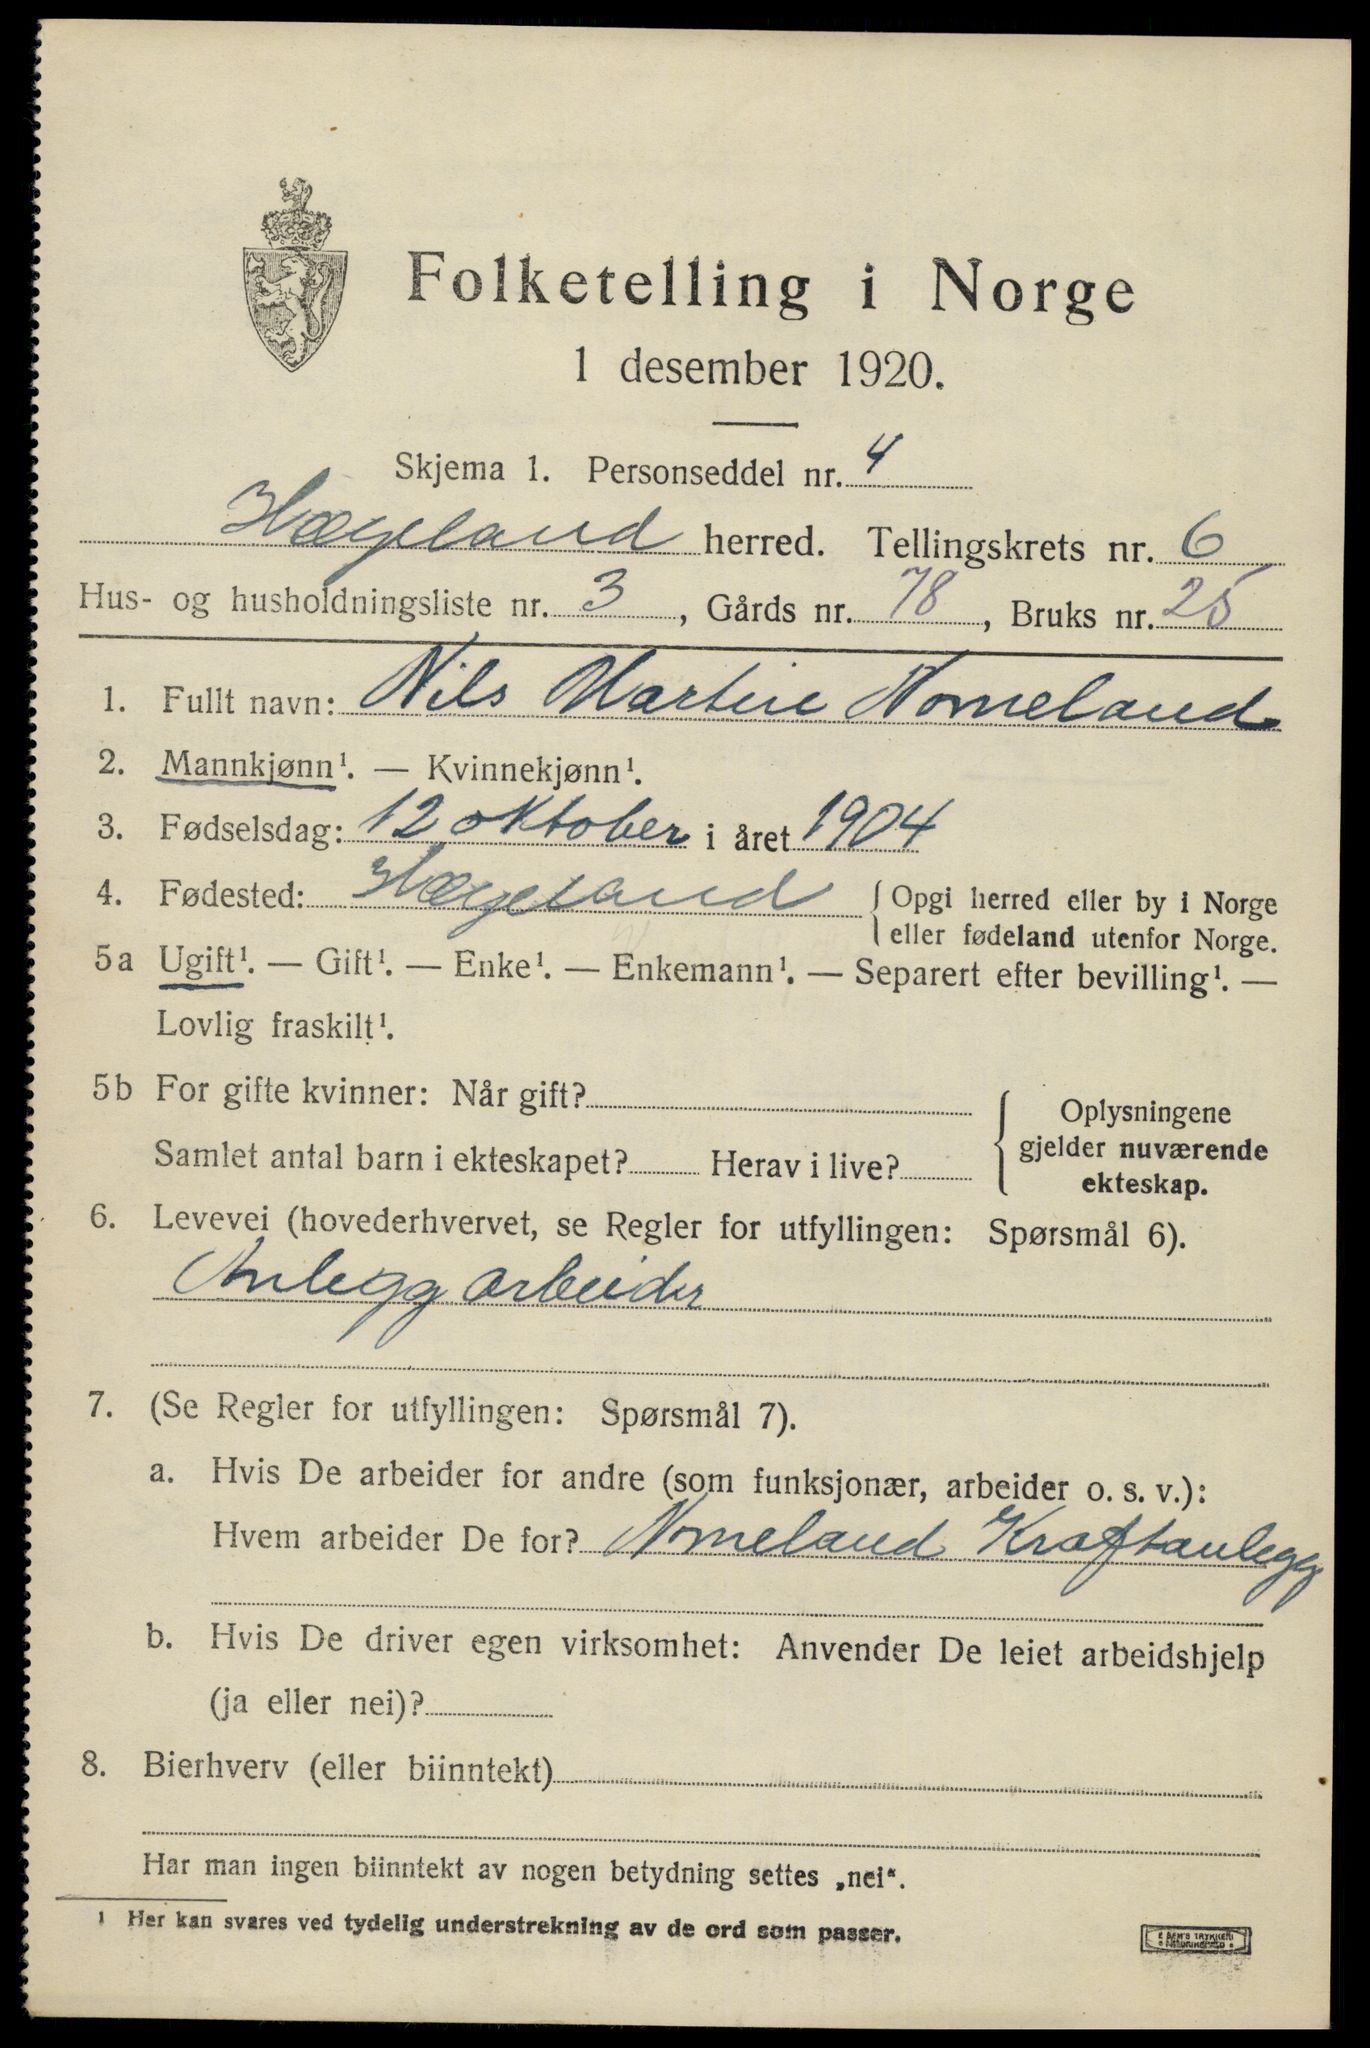 Folketelling i Norge
1 desember 1920.
Skjema 1. Personseddel nr. 4
Hægeland herred. Tellingskrets nr. 6
Hus- og husholdningsliste nr. 3, Gårds nr. 78, Bruks nr. 25
1. Fullt navn: Nils Martin Nomeland
2. Mannkjønn¹. — Kvinnekjønn¹.
3. Fødselsdag: 12 oktober i året 1904
4. Fødested: Hægeland { Opgi herred eller by i Norge
eller fødeland utenfor Norge.
5a Ugift¹. — Gift¹. — Enke¹. — Enkemann¹. — Separert efter bevilling¹. —
Lovlig fraskilt¹.
5b For gifte kvinner: Når gift?
Samlet antal barn i ekteskapet? Herav i live?
Oplysningene
gjelder nuværende
ekteskap.
6. Levevei (hovederhvervet, se Regler for utfyllingen: Spørsmål 6).
Anlegg arbeider
7. (Se Regler for utfyllingen: Spørsmål 7).
a. Hvis De arbeider for andre (som funksjonær, arbeider o. s. v.):
Hvem arbeider De for? Nomeland Kraftanlegg
b. Hvis De driver egen virksomhet: Anvender De leiet arbeidshjelp
(ja eller nei)?
8. Bierhverv (eller biinntekt)
Har man ingen biinntekt av nogen betydning settes „nei“.
1 Her kan svares ved tydelig understrekning av de ord som passer.